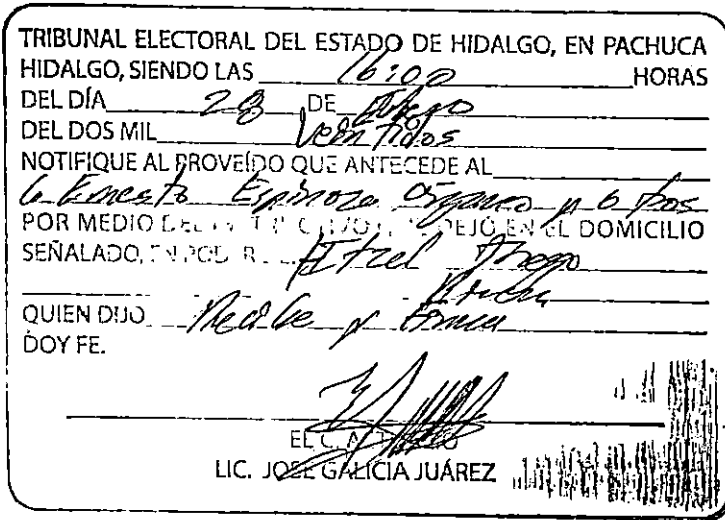 TRIBUNAL ELECTORAL DEL ESTADO DE HIDALGO, EN PACHUCA
HIDALGO, SIENDO LAS 16:00 HORAS
DEL DÍA 28 DE
DEL DOS MIL veintidos
NOTIFIQUE AL PROVEÍDO QUE ANTECEDE AL
C. Ernesto Espinoza y otros
POR MEDIO DEJÓ EN EL DOMICILIO
SEÑALADO, Itzel
QUIEN DIJO Recibe y firma
DOY FE.
EL C.
LIC. JOSE GALICIA JUÁREZ